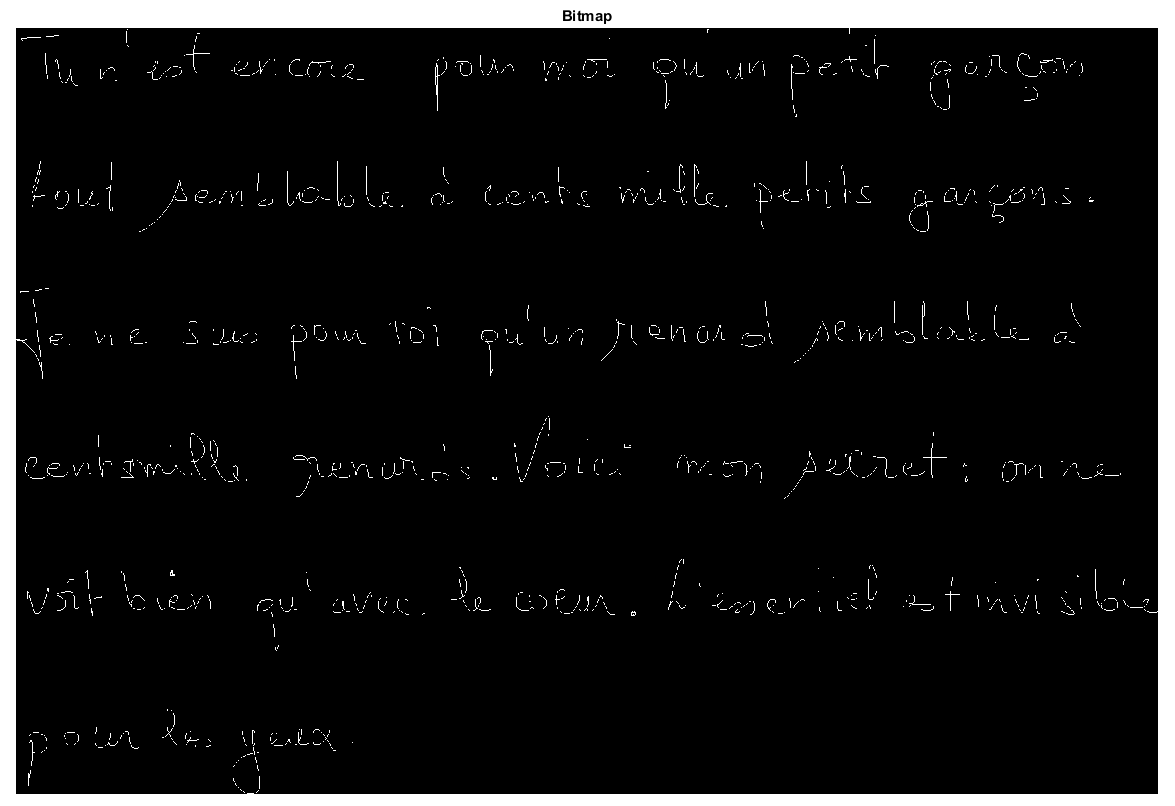 Bitmap
Tu n'est encore pour moi qu'un petit garçon
tout semblable à cents mille petits garçons.
Je ne suis pour toi qu'un renard semblable à
cents mille renards. Voici mon secret : on ne
voit bien qu'avec le coeur. L'essentiel est invisible
pour les yeux.